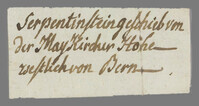 Serpentinsteingeschieb von
der Maykircher Höhe
westlich von Bern